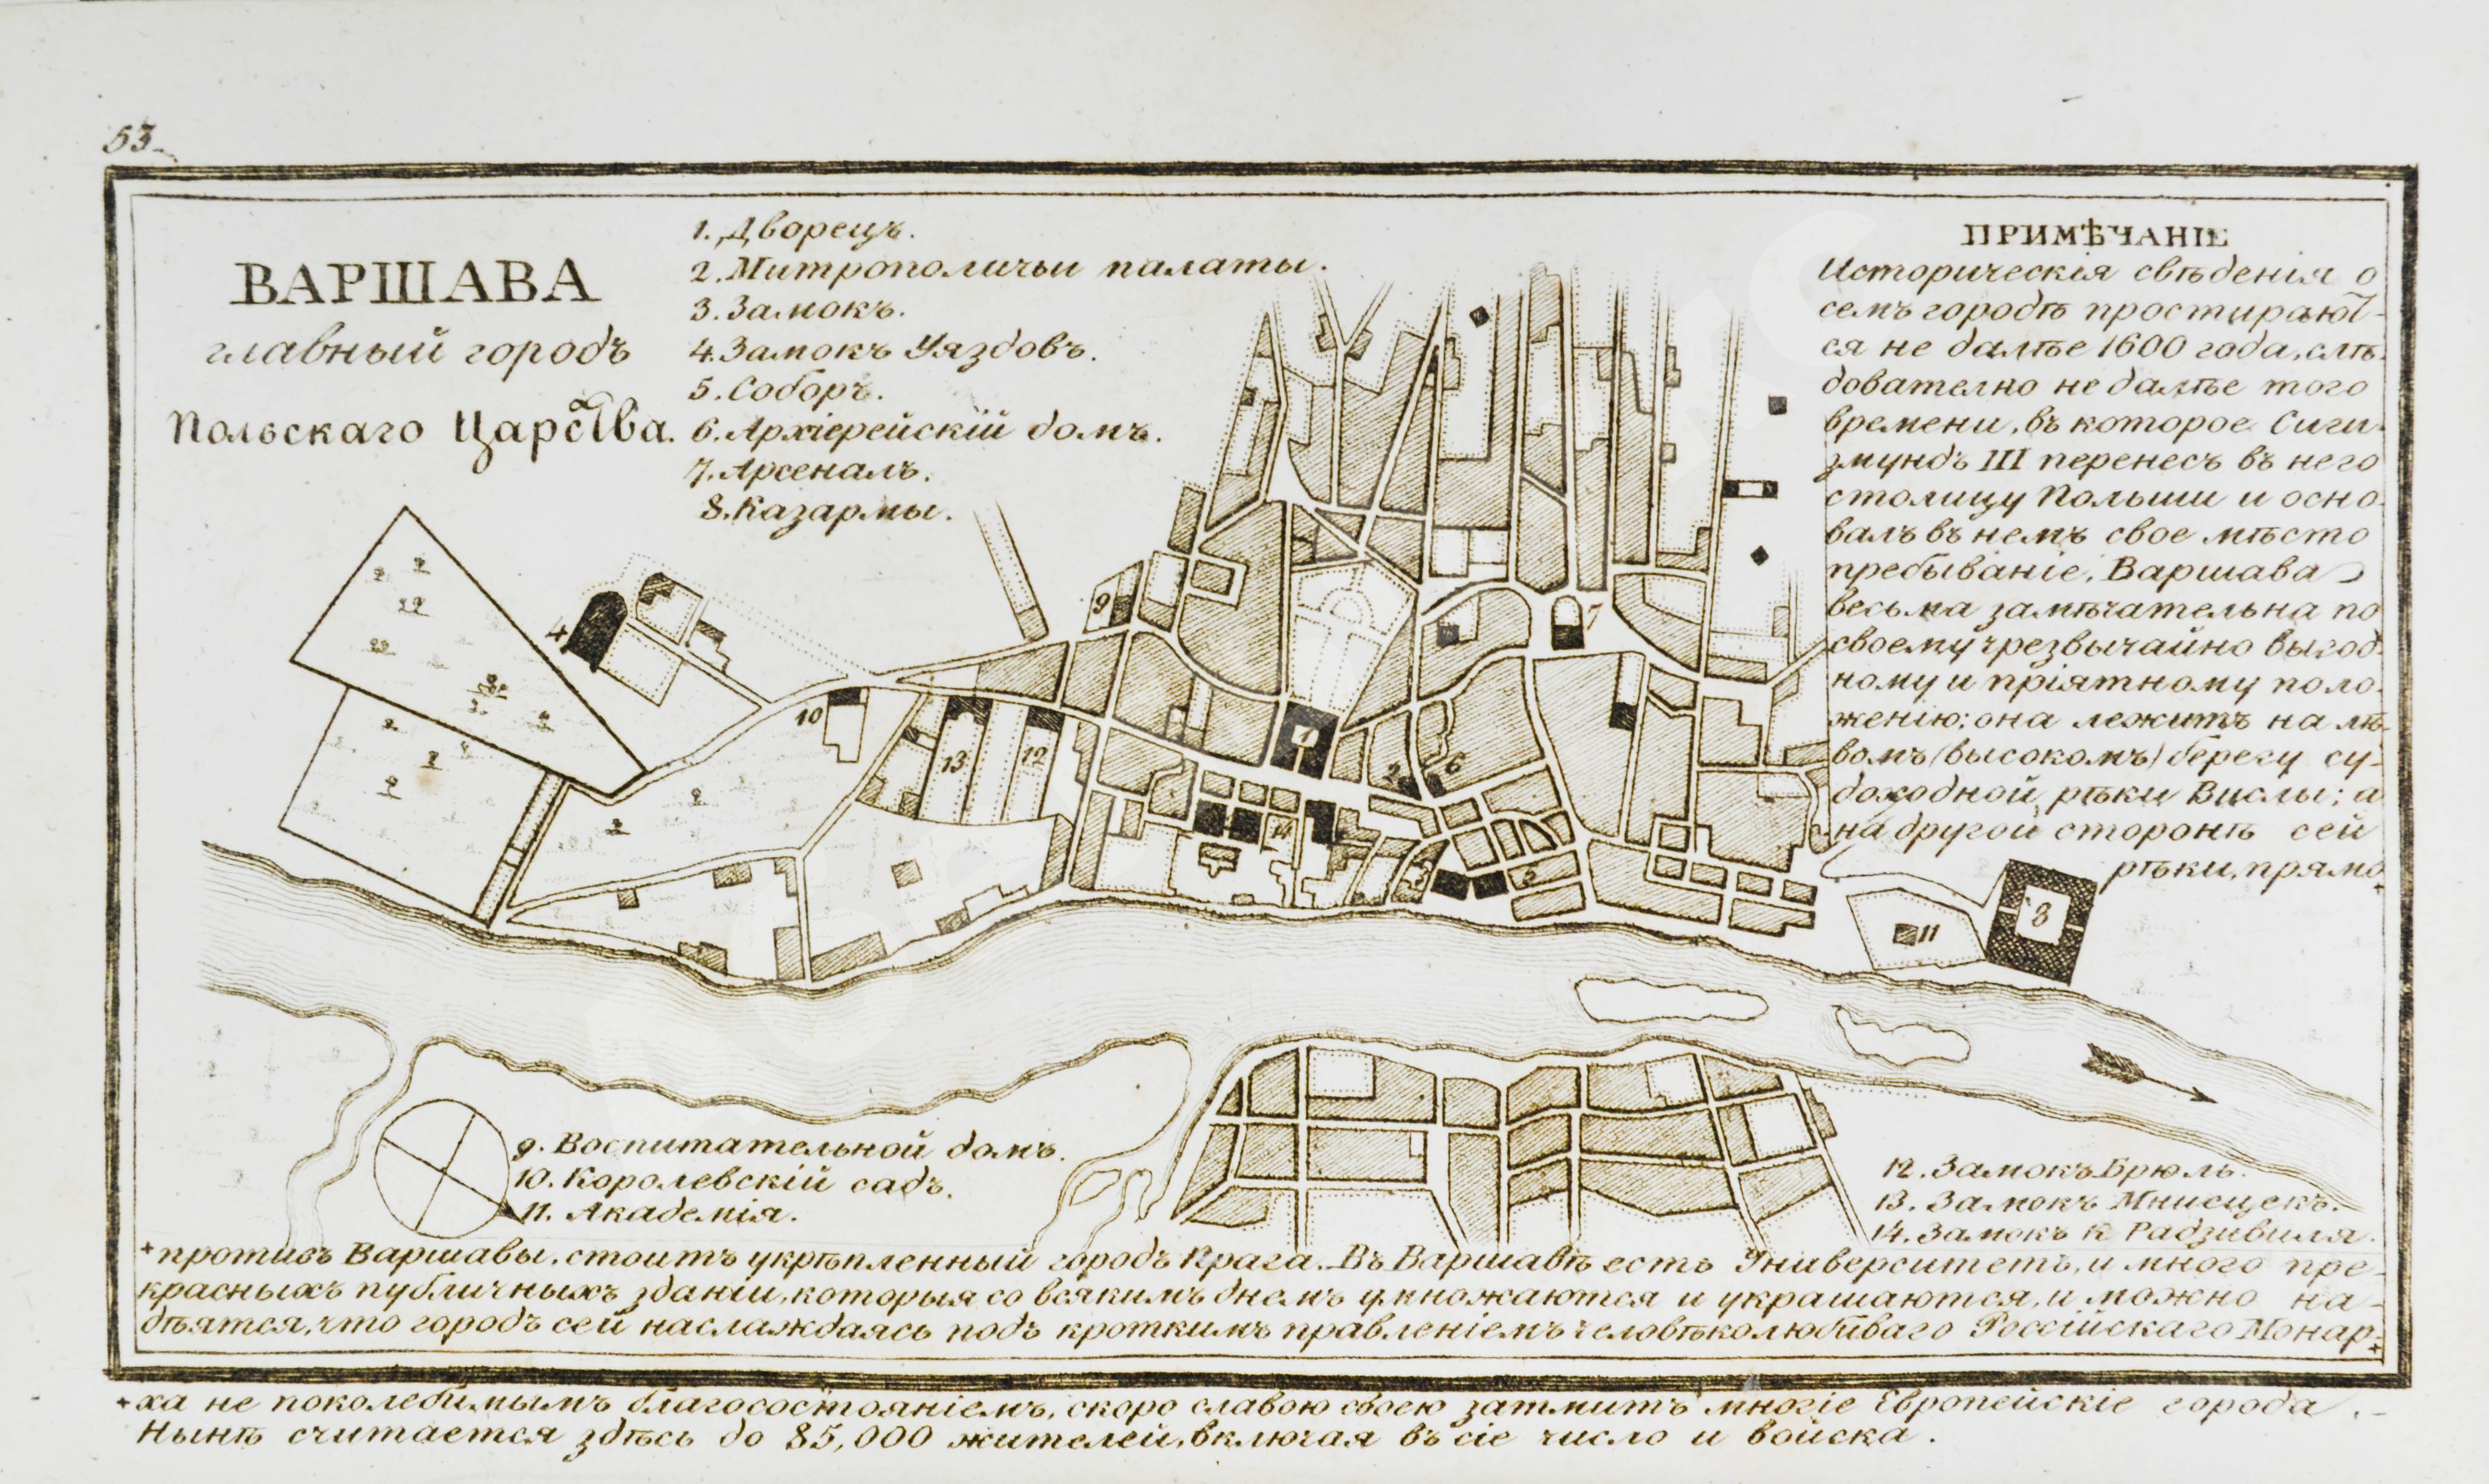 53
ВАРШАВА
главный городъ
Польскаго Царства.
1. Дворецъ.
2. Митрополичьи палаты.
3. Замокъ.
4. Замокъ Уяздовъ.
5. Соборъ.
6. Архіерейскій домъ.
7. Арсеналъ.
8. Казармы.
ПРИМѢЧАНІЕ
Историческія свѣденія о
семъ городѣ простирают-
ся не далѣе 1600 года, слѣ-
дователно не далѣе того
времени, въ которое Сиги-
змундъ III перенесъ въ него
столицу Польши и осно-
валъ въ немъ свое мѣсто
пребываніе. Варшава
весьма замѣчательна по
своему чрезвычайно выгод-
ному и пріятному поло-
женію; она лежитъ на лѣ-
вомъ (высокомъ) берегу су-
доходной рѣки Вислы; а
на другой сторонѣ сей
рѣки, прямо +
4
9
7
10
13
12
1
2
6
14
3
5
11
8
9. Воспитательной домъ.
10. Королевскій садъ.
11. Академія.
12. Замокъ Брюль.
13. Замокъ Мнисцекъ.
14. Замокъ К Радзивиля.
+ противъ Варшавы, стоитъ укрѣпленный городъ Крага. Въ Варшавѣ есть Университетъ, и много пре-
красныхъ публичныхъ зданіи, которыя со всякимъ днемъ умножаются и украшаются, и можно на-
дѣятся, что городъ сей наслаждаясь подъ кроткимъ правленіемъ человѣколюбиваго Россійскаго Монар- +
+ ха не поколебимымъ благосостояніемъ, скоро славою своею затмитъ многіе Европейскіе города.
Нынѣ считается здѣсь до 85,000 жителей, включая въ сіе число и войска.